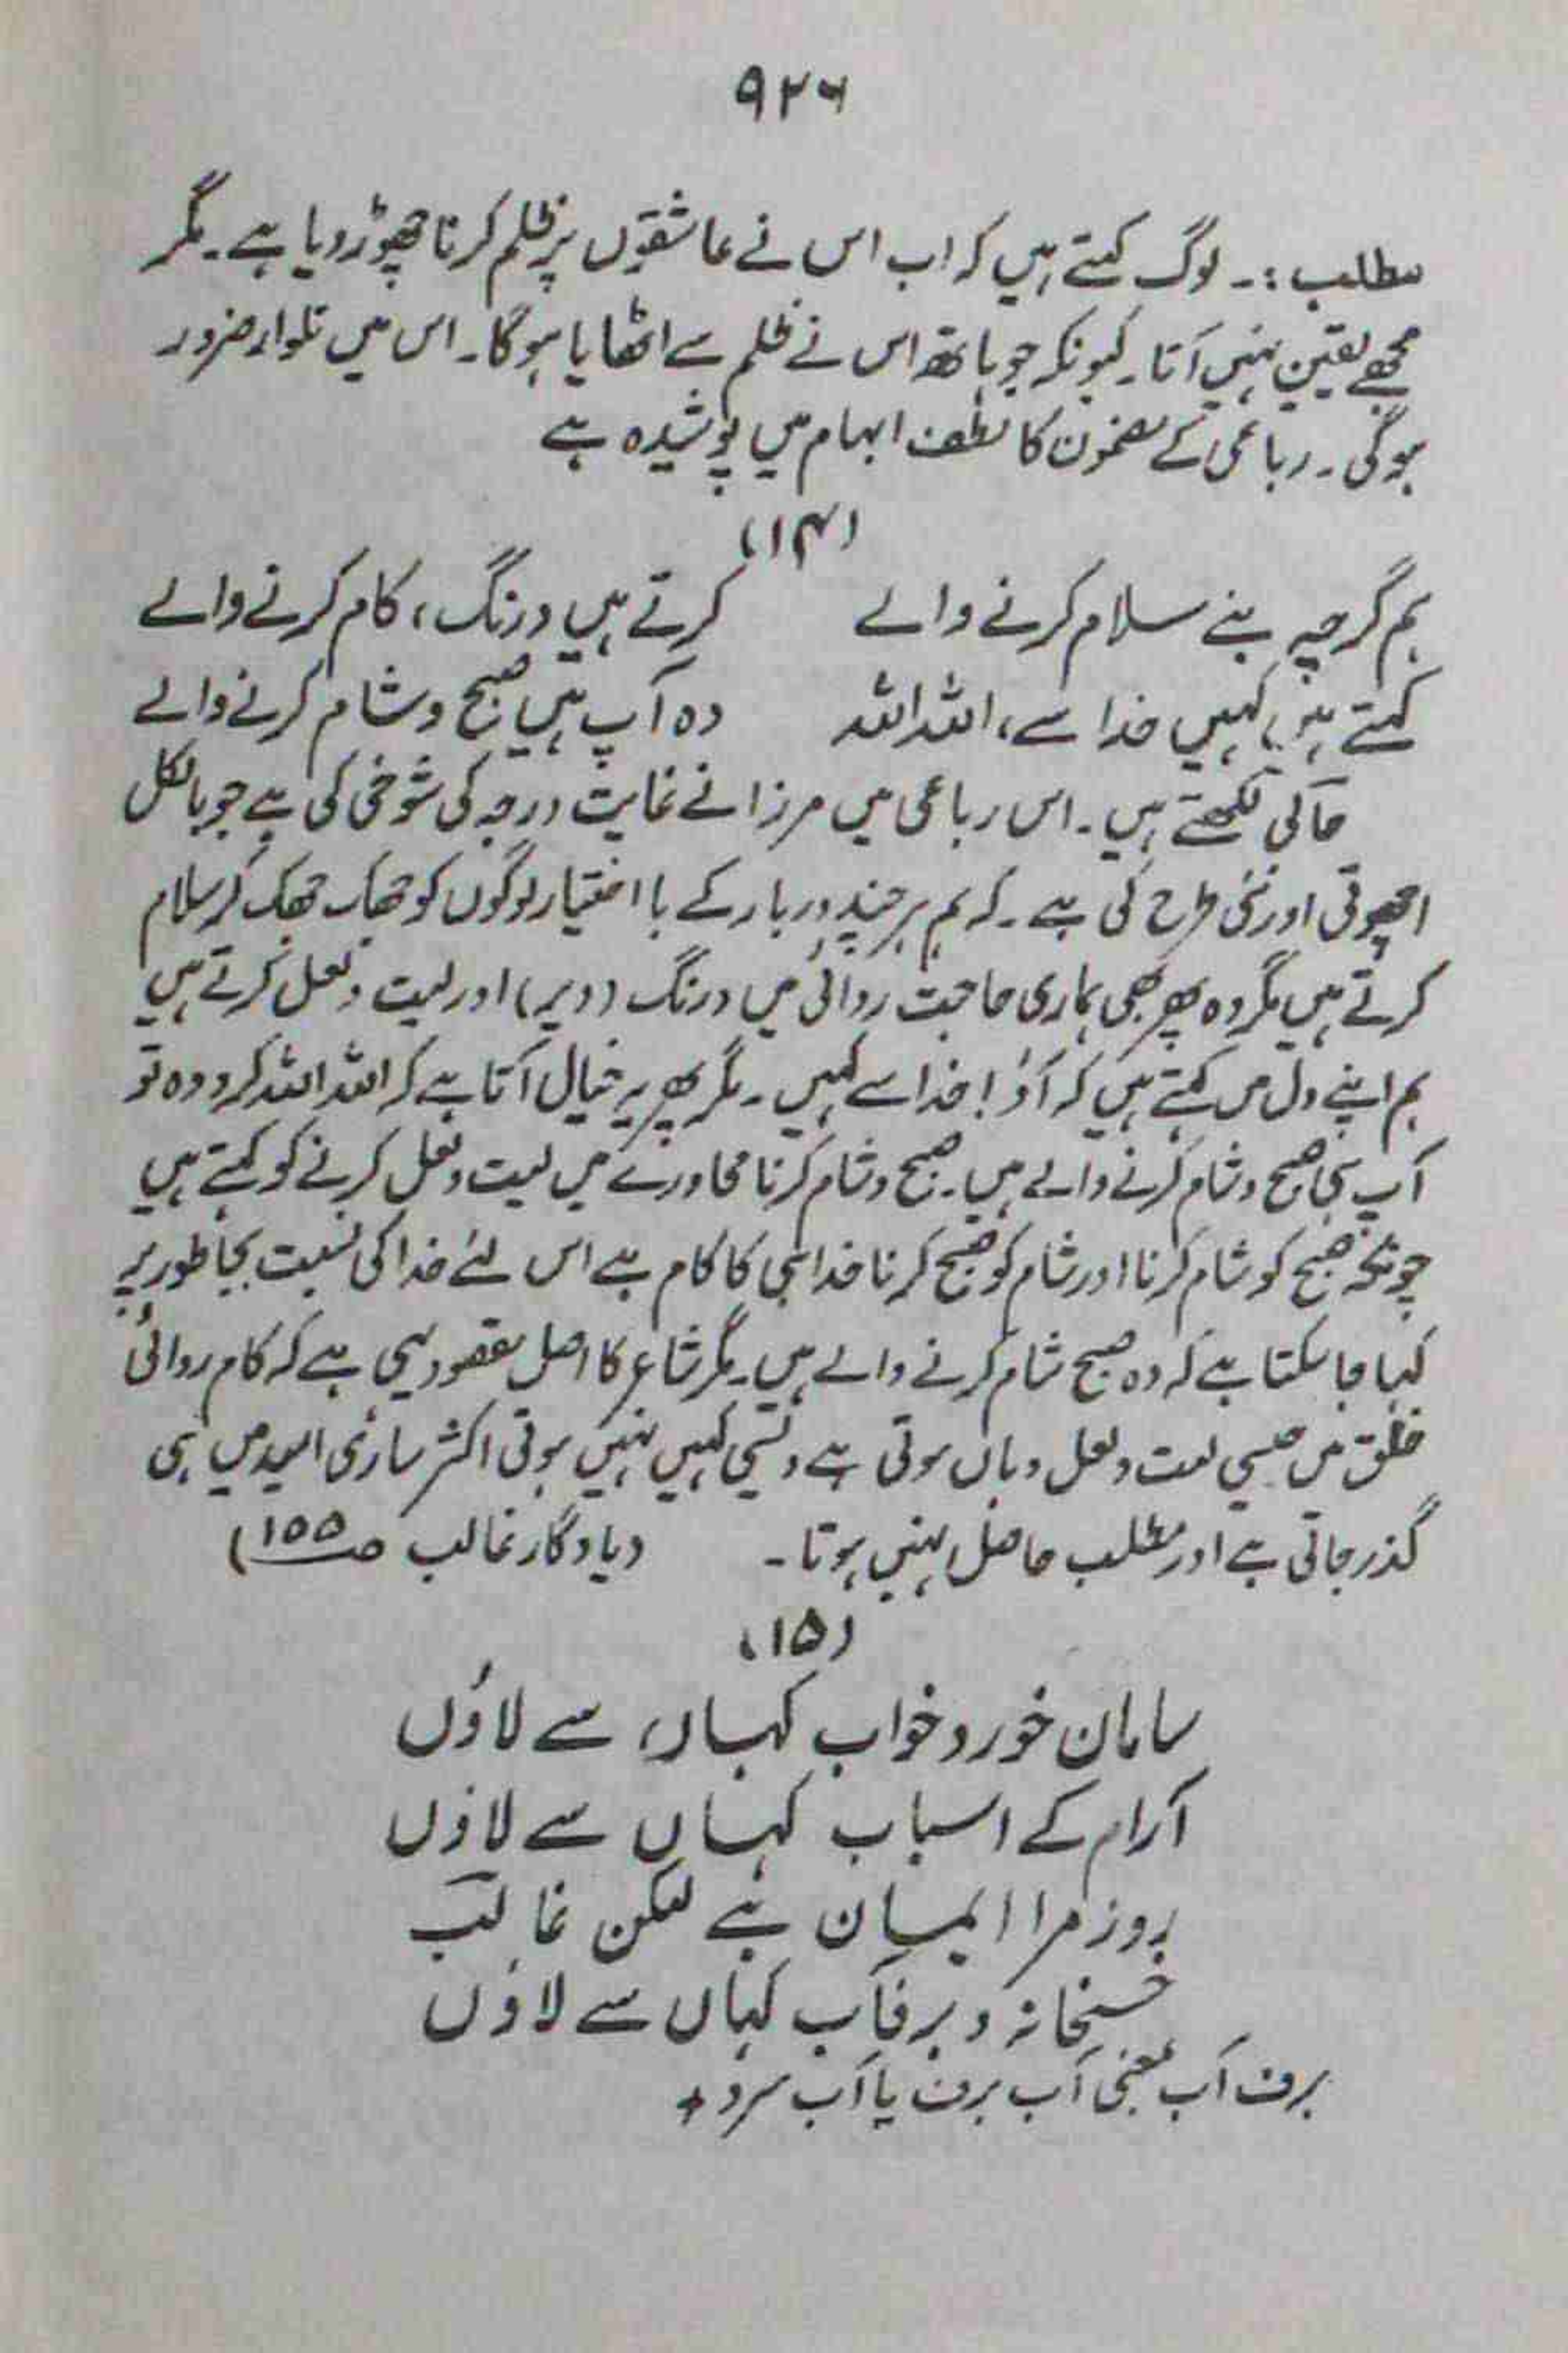 ۹۲۶
مطلب :۔ لوگ کہتے ہیں کہ اب اس نے عاشقوں پر ظلم کرنا چھوڑ دیا ہے۔ مگر
مجھے یقین نہیں آتا۔ کیونکہ جو ہاتھ اس نے ظلم سے اٹھایا ہوگا۔ اس میں تلوار ضرور
ہوگی۔ رباعی کے مضمون کا لطف ابہام میں پوشیدہ ہے
(۱۴)
ہم گرچہ بنے سلام کرنے والے کرتے ہیں درنگ، کام کرنے والے
کہتے ہیں کہیں خدا سے، اللہ اللہ وہ آپ ہیں صبح و شام کرنے والے
حالی لکھتے ہیں۔ اس رباعی میں مرزا نے غایت درجہ کی شوخی کی ہے جو بالکل
اچھوتی اور نئی طرح کی ہے۔ کہ ہم ہر چند دربار کے با اختیار لوگوں کو جھک جھک کر سلام
کرتے ہیں مگر وہ پھر بھی ہماری حاجت روائی میں درنگ (دیر) اور لیت و لعل کرتے ہیں
ہم اپنے دل میں کہتے ہیں کہ آؤ! خدا سے کہیں۔ مگر پھر یہ خیال آتا ہے کہ اللہ اللہ کرو وہ تو
آپ ہی صبح و شام کرنے والے ہیں۔ صبح و شام کرنا محاورے میں لیت و لعل کرنے کو کہتے ہیں
چونکہ صبح کو شام کرنا اور شام کو صبح کرنا خدا ہی کا کام ہے اس لئے خدا کی نسبت بجا طور پر
کہا جا سکتا ہے کہ وہ صبح شام کرنے والے ہیں۔ مگر شاعر کا اصل مقصود یہی ہے کہ کام روائی
خلق میں جیسی لیت و لعل وہاں ہوتی ہے ویسی کہیں نہیں ہوتی اکثر ساری امید میں ہی
گذر جاتی ہے اور مطلب حاصل نہیں ہوتا۔ (یادگار غالب صـ ۱۵۵)
(۱۵)
سامان خور و خواب کہاں سے لاؤں
آرام کے اسباب کہاں سے لاؤں
روزہ مرا ایمان ہے لیکن غالب
خسخانہ و برفاب کہاں سے لاؤں
برف آب بمعنی آب برف یا آب سرد +